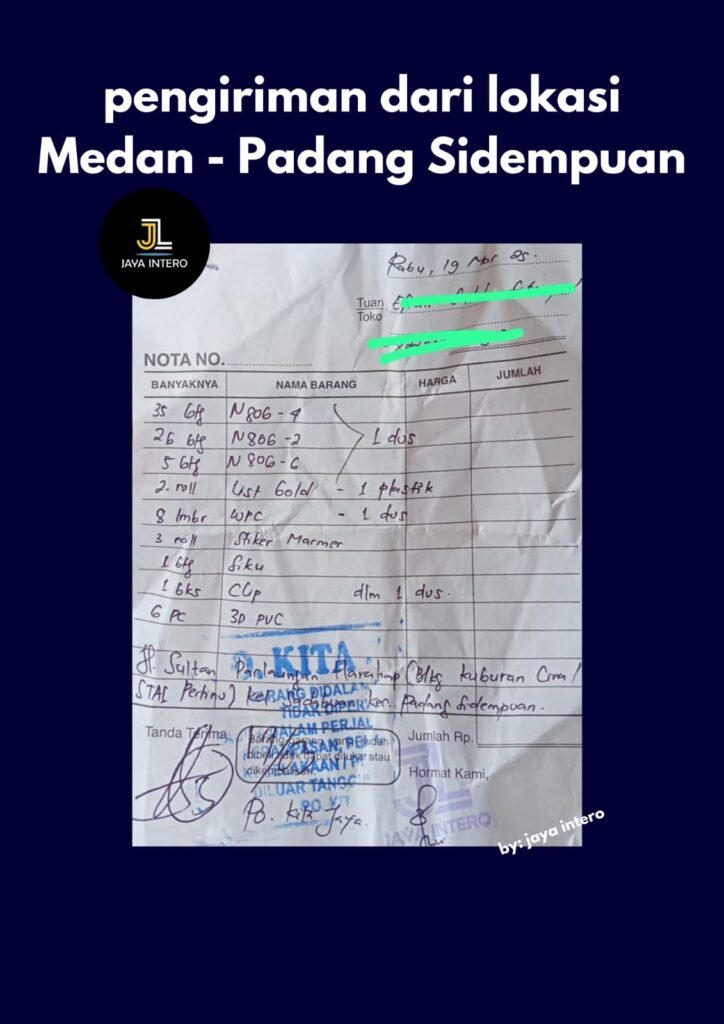 pengiriman dari lokasi
Medan - Padang Sidempuan
JL
JAYA INTERO
Rabu, 19 Mar 25.
Tuan
Toko
NOTA NO.
BANYAKNYA NAMA BARANG HARGA JUMLAH
35 btg N806-4
26 btg N806-2 1 dus
5 btg N806-6
2 roll List Gold - 1 plastik
8 lmbr WPC - 1 dus
3 roll Stiker Marmer
1 btg Siku
1 bks Clip dlm 1 dus.
6 Pc 3D PVC
KITA
Jl. Sultan Harahap (Blkg kuburan Cina/
STAI Pertinu) kel. kec. Padang Sidempuan.
BARANG DIDALA
TIDAK DIPER
DALAM PERJAL
Tanda Terima
Barang-barang yang sudah
dibeli tidak dapat ditukar atau
dikembalikan.
DILUAR TANGG
PO. KIT
Jumlah Rp.
Hormat Kami,
PO. Kita Jaya.
JAYA INTERO
by: jaya intero